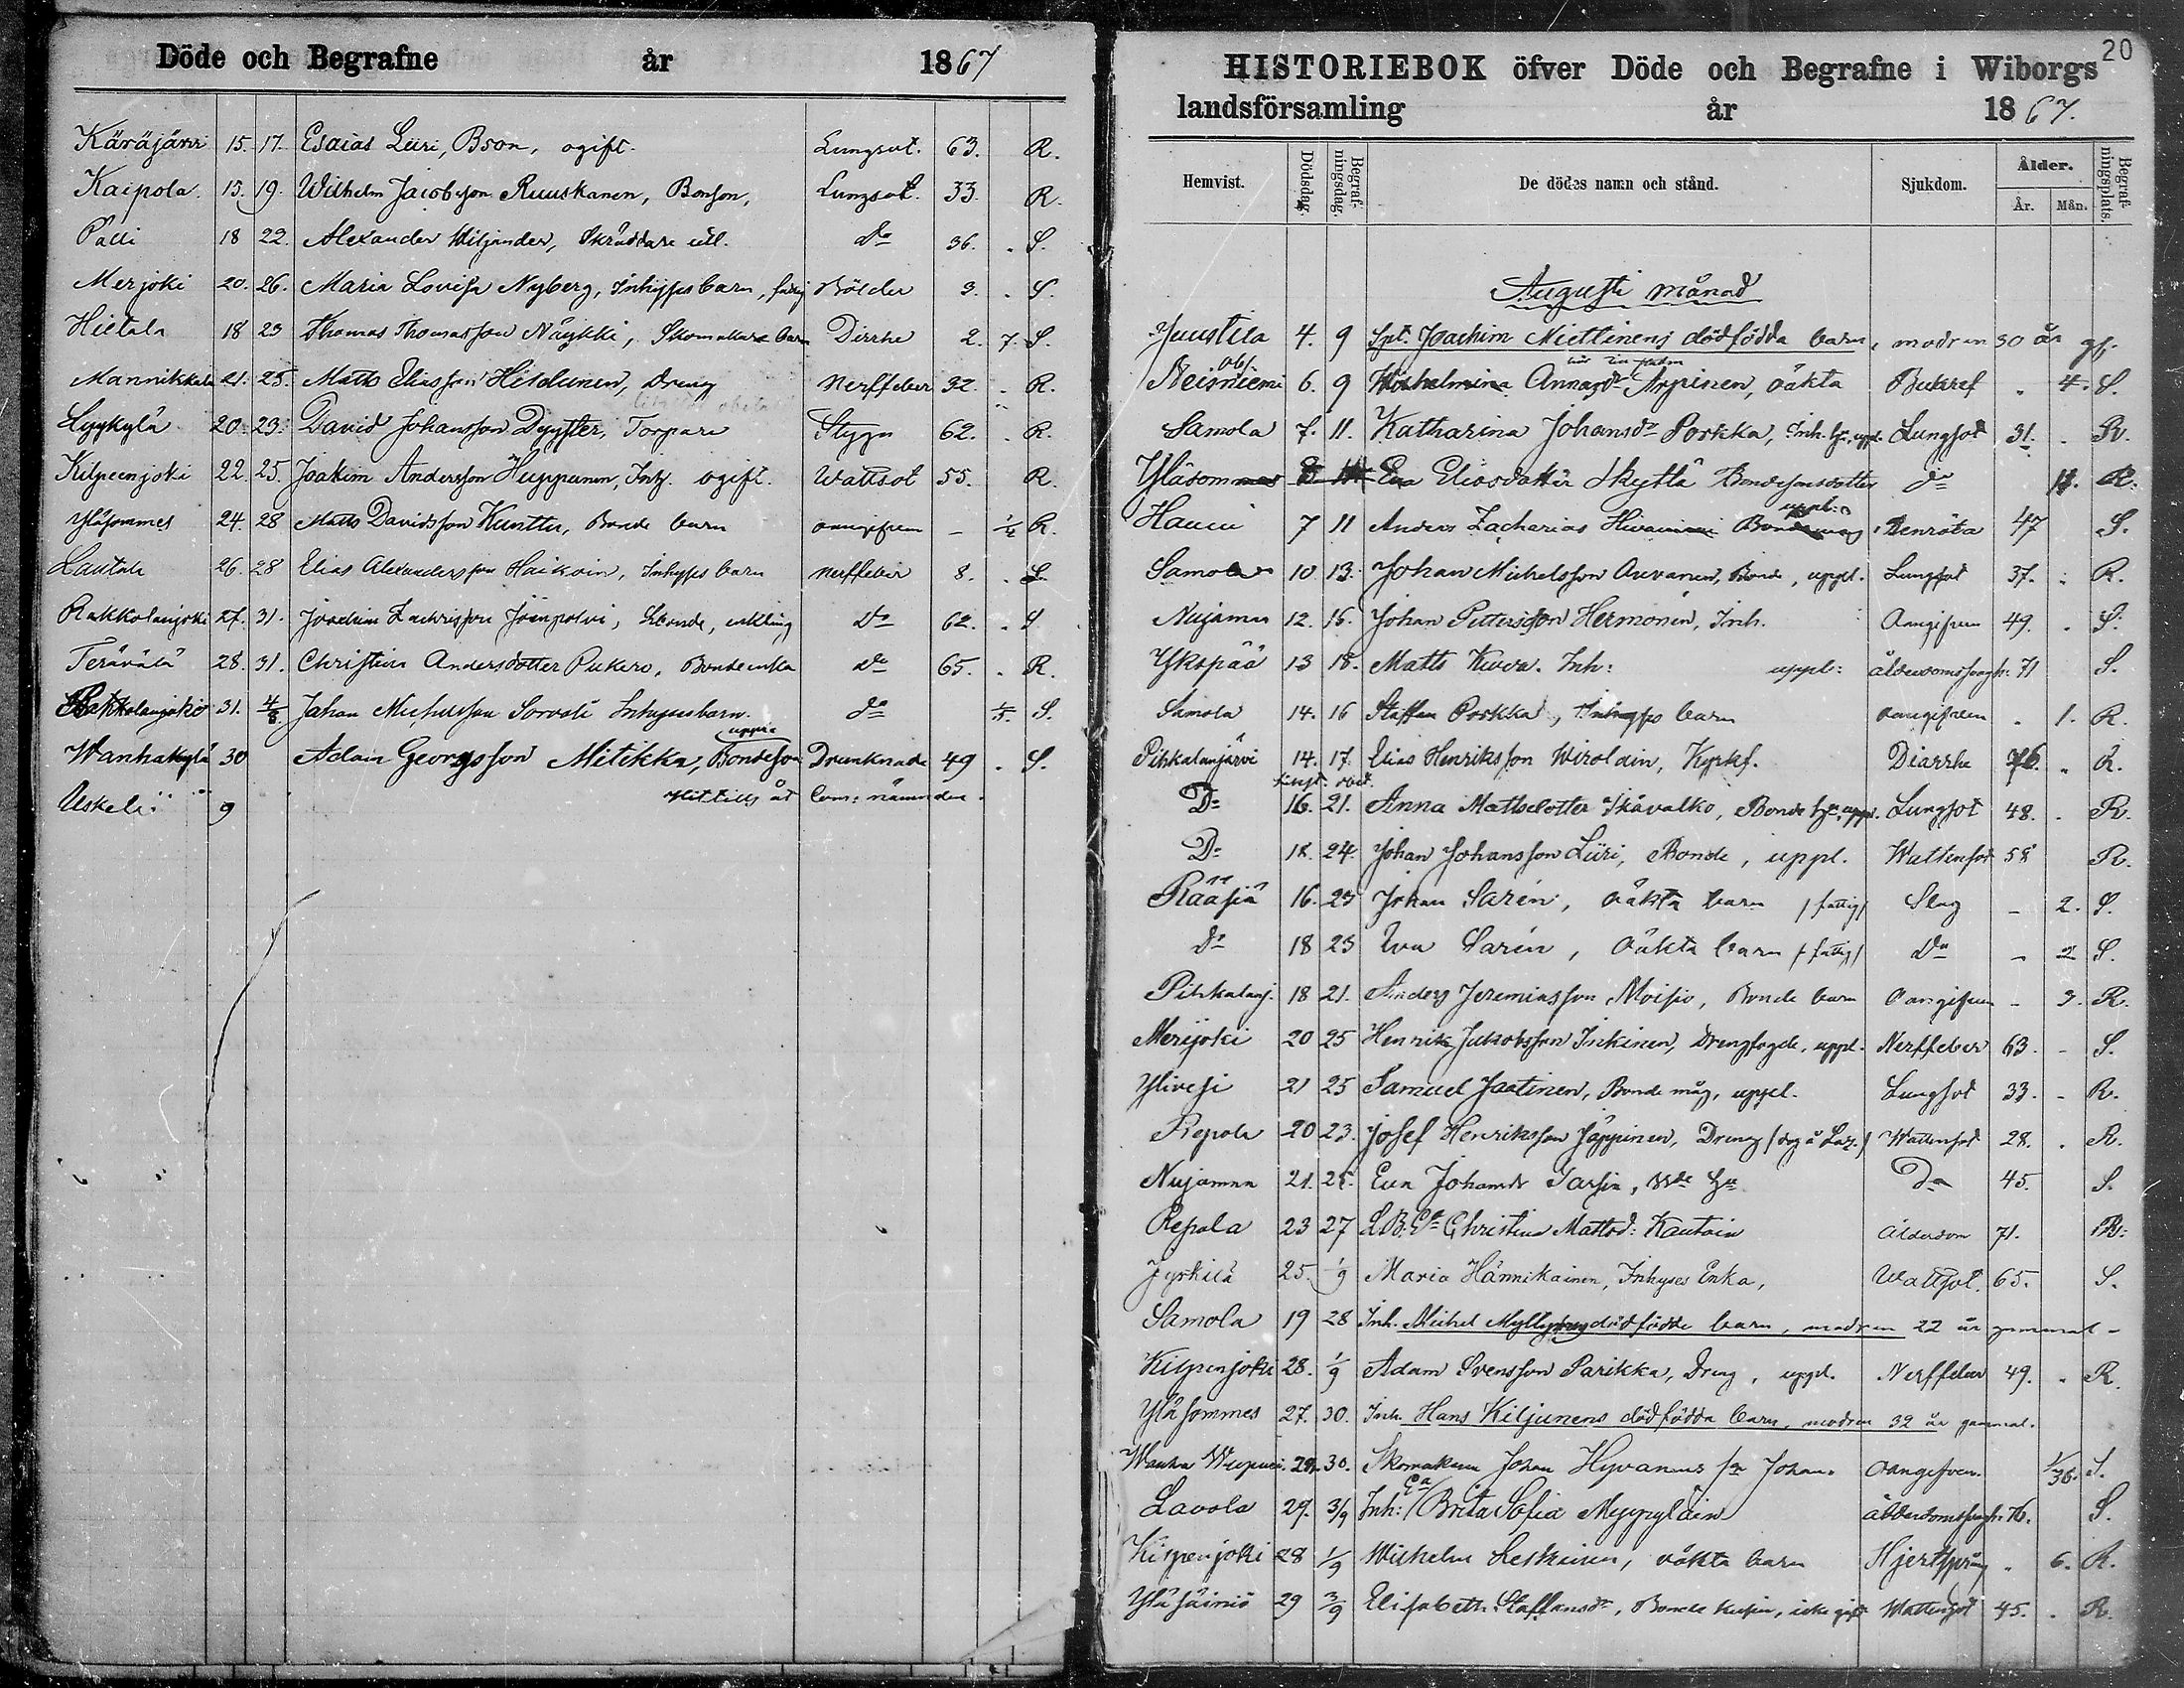 Döde och Begrafne år 1867
Käräjärvi 15. 17. Esaias Liiri, Bson, ogift. Lungsot. 63. R.
Kaipola. 15. 19. Wilhelm Jacobsson Ruuskanen, Bonson, Lungsot. 33. R.
Pälli 18 22. Alexander Wiljander, Skräddare Do 36. S.
Merjoki 20. 26. Maria Lovisa Nyberg, Inhyses barn, fattig Bölder 3. S.
Hietala 18 23 Thomas Thomasson Näykki, Skomakare barn Dirrhe 2. 7. S.
Mannikkala 21. 25. Matts Eliasson Hildunen, Dreng Nerffeber 32. R.
Lyykylä 20. 23. David Johansson Dyyster, Torpare Stygn 62. R.
Kilpeenjoki 22. 25. Joakim Andersson Huppunen, Inh. ogift. Wattsot 55. R.
Yläsommes 24. 28 Matts Davidsson Kunttu, Bonde barn oangifven – 1/2 R.
Lautala 26. 28 Elias Alexandersson Haikoin, Inhyses barn Nerffeber 8. S.
Rakkolanjoki 27. 31. Joachim Zachrisson Jöenpolvi, Bonde, enkling Do 62. S
Terävälä 28. 31. Christina Andersdotter Pukero, Bonde enka Do 65. R.
Rakkolanjoki 31. 4/8. Johan Michelsson Sorvali Inhyses barn. Do 1/5. S.
uppl:
Wanhakylä 30 Adam Georgsson Mitikka, Bondeson Drunknade 49 S.
Uskeli: 9 Hittills åt Com: nämnden.
20
HISTORIEBOK öfver Döde och Begrafne i Wiborgs
landsförsamling år 1867.
Hemvist. Dödsdag. Begrafningsdag. De dödes namn och stånd. Sjukdom. Ålder. Begrafningsplats.
År. Mån.
Augusti månad
Juustila 4. 9 Spt. Joachim Miettinens dödfödda barn, modren 30 år gl.
obs.
Neisniemi 6. 9 Wilhelmina Annasdr Arpinen, oäkta Bukref 4. S.
Samola 7. 11. Katharina Johansdr Porkka, Inh. hu, uppl. Lungsot 31. R.
Yläsommes Eva Eliasdotter Skyttä Bondesonsdotter Do R.
uppl:
Hauvi 7 11 Anders Zacharias Benröta 47 S.
Samola 10 13. Johan Michelsson Auvanen, Bonde, uppl. Lungsot 37. R.
Nujamaa 12. 16. Johan Pettersson Hermonen, Inh. Oangifven 49. S.
Ykspää 13 18. Matts Kuova. Inh: uppl: ålderdomssvagh: 71 S.
Samola 14. 16 Staffan Porkka, Inhyses barn oangifven 1. R.
Pihkalanjärvi 14. 17. Elias Henriksson Wirolain, Kyrkf. Diarrhe 76. R.
Do 16. 21. Anna Mattsdotter Skävalko, Bonde hu, uppl. Lungsot 48. R.
Do 18. 24. Johan Johansson Liiri, Bonde, uppl. Wattensot 58 R.
Rääsiä 16. 23 Johan Sarén, oäkta barn /fattig/ Slag – 2. S.
Do 18 23 Eva Sarén, oäkta barn /fattig/ Do – 2 S.
Pihkalanj. 18 21. Anders Jeremiasson Moisio, Bonde barn Oangifven – 3. R.
Merijoki 20 25 Henrik Jakobsson Inkinen, Drengfogde, uppl. Nerffeber 63. – S.
Ylivesi 21 25 Samuel Jaatinen, Bonde måg, uppl. Lungsot 33. – R.
Repola 20 23. Josef Henriksson Jäppinen, Dreng /dog å Laz./ Wattensot 28. R.
Nujamaa 21. 25. Eva Johansdr Sarsia, Bde hu Do 45. S.
Repola 23 27 L.B. Ea Christina Mattsd: Kautoin Ålderdom 71. R:
Jyrkilä 25. 1/9 Maria Hännikainen, Inhyses Enka, Wattsot. 65. S.
Samola 19 28 Inh. Michel dödfödde barn, modren 22 år gammal –
Kilpenjoki 28. 1/9 Adam Svensson Parikka, Dreng, uppl. Nerffeber 49. R.
Yläsommes 27. 30. Inh. Hans Kiljunens dödfödda barn, modren 32 år gammal.
Wanha Wiipuri. 29. 30. Skomakaren Johan Hyvänens son Johan. Oangifven. 1/36. S.
Ea
Lavola 29. 3/9 Inh: Brita Sofia Myyryläin ålderdomssvagh. 76. S.
Kilpenjoki 28 1/9 Wilhelm Leskinen, oäkta barn Hjertsprång 6. R.
Yläsäiniö 29 3/9 Elisabeth Staffansdr, Bonde kusin, icke gift Wattensot 45. R.